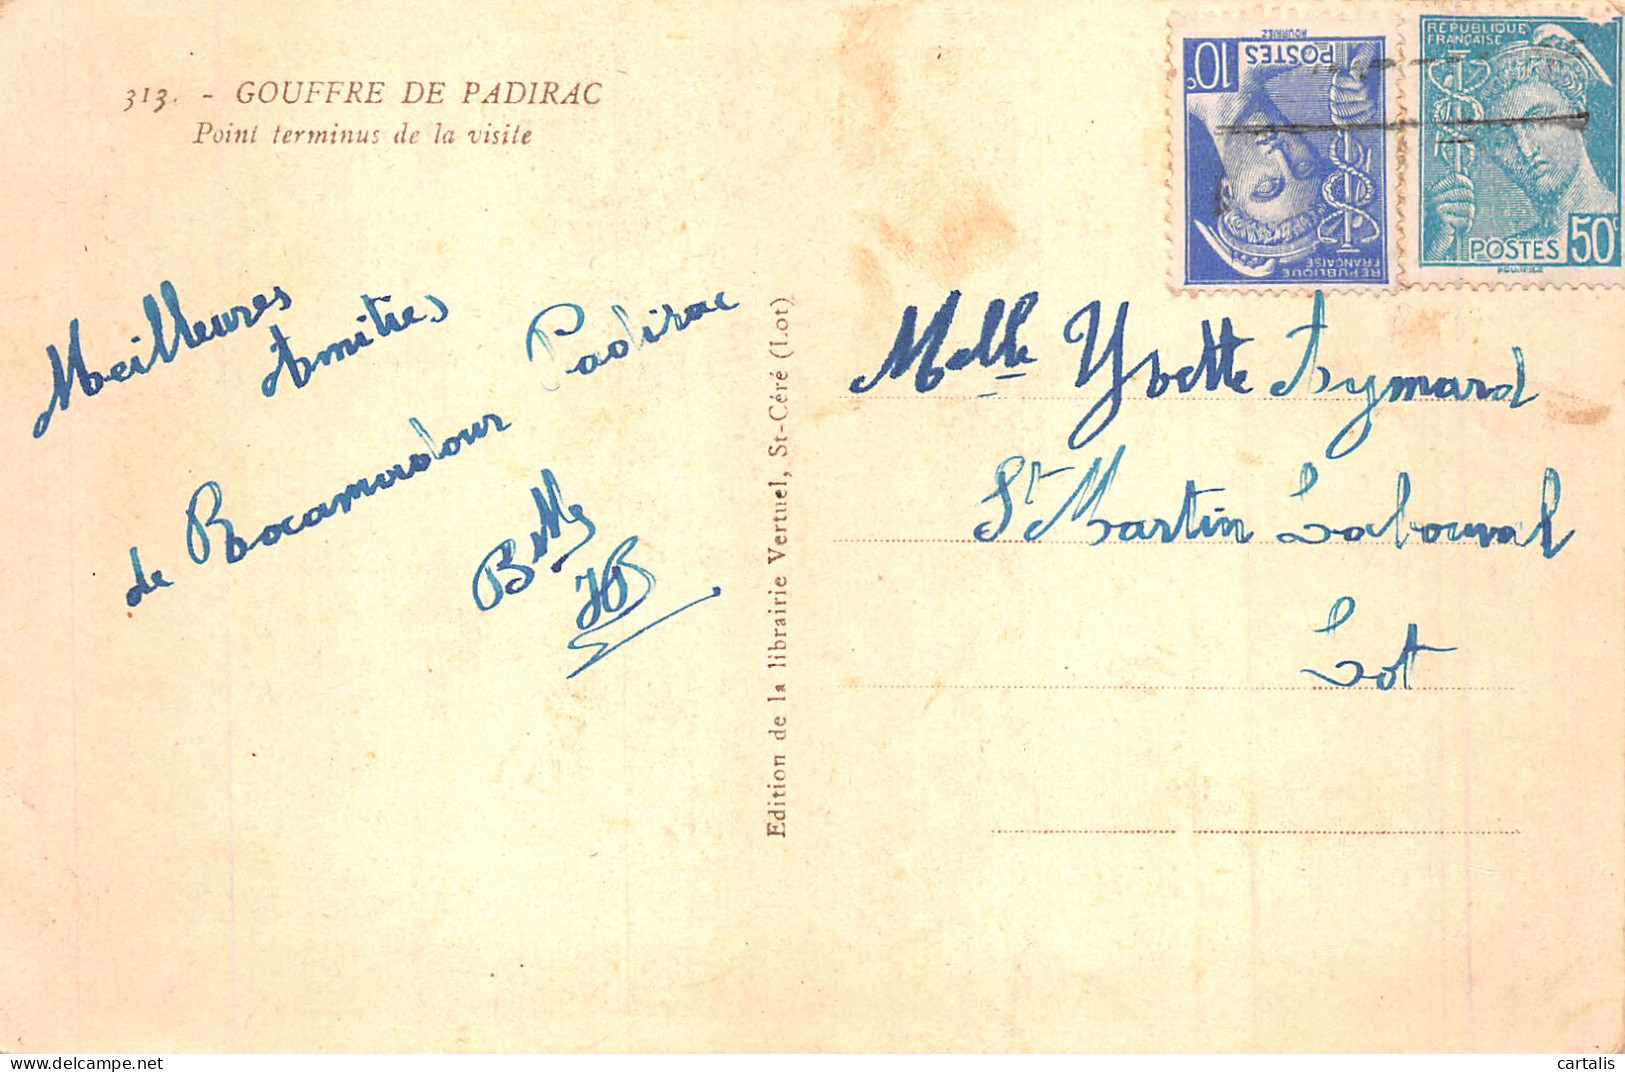 313. - GOUFFRE DE PADIRAC
Point terminus de la visite
Meilleures
Amitiés
de Rocamadour Padirac
JB
Edition de la librairie Vertuel, St-Céré (Lot)
10c
POSTES
ROURIEZ
REPUBLIQUE
FRANÇAISE
REPUBLIQUE
FRANÇAISE
POSTES 50c
ROURIEZ
Melle Yvette Aymard
St Martin Labouval
Lot
cartalis